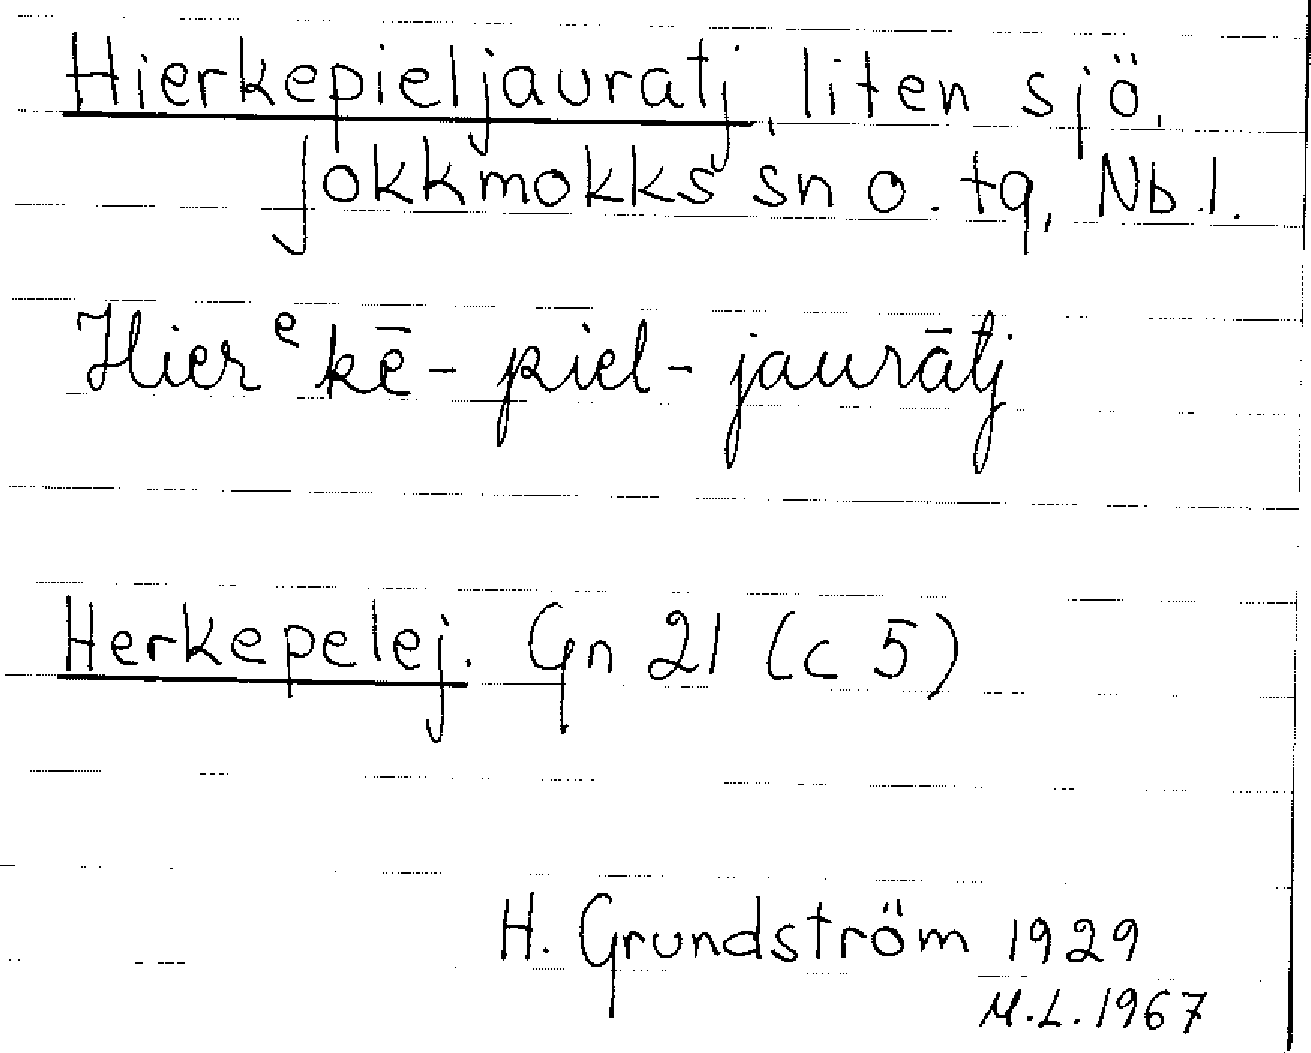 Hierkepieljauratj, liten sjö,
Jokkmokks sn o. tg, Nb.l.
Hierᵉkē-piel-jaurātj
Herkepelej. Gn 21 (c 5)
H. Grundström 1929
M.L. 1967